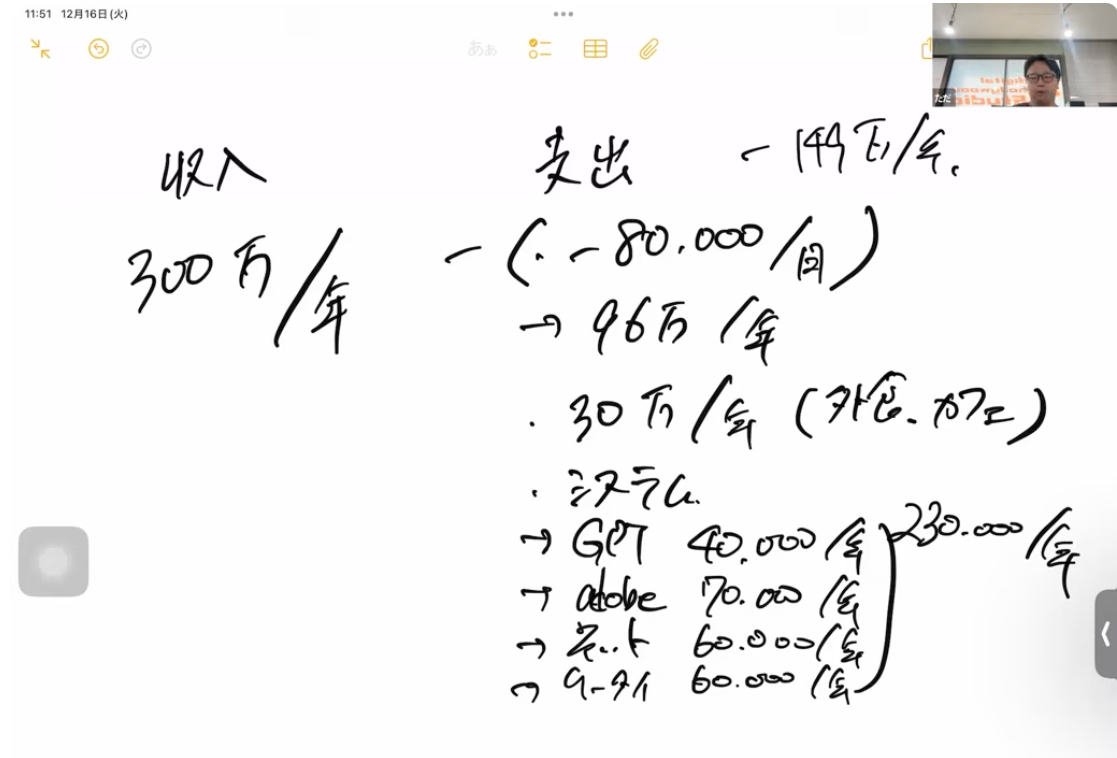 11:51 12月16日(火)
ああ
ただ
収入
支出 - 149万/年.
300万/年
- (・-80,000/月)
→ 96万/年
・30万/年 (外食、カフェ)
・システム
→ GPT 40,000/年
→ adobe 70,000/年
→ ネット 60,000/年
→ ケータイ 60,000/年
230,000/年